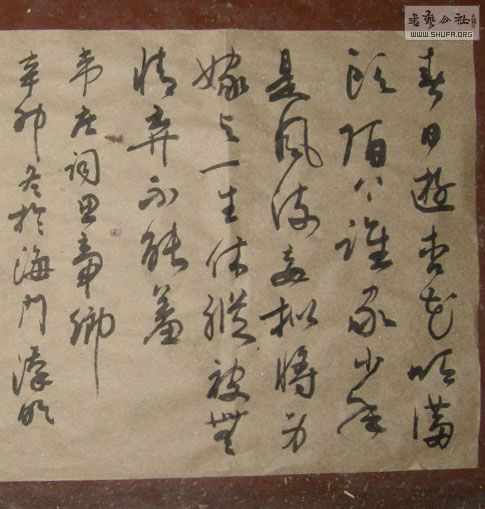 書藝公社
WWW.SHUFA.ORG
春日遊杏花吹滿
頭陌上誰家少年
足風流妾擬將身
嫁與一生休縱被無
情棄不能羞
韋莊詞思帝鄉
辛卯冬於海門